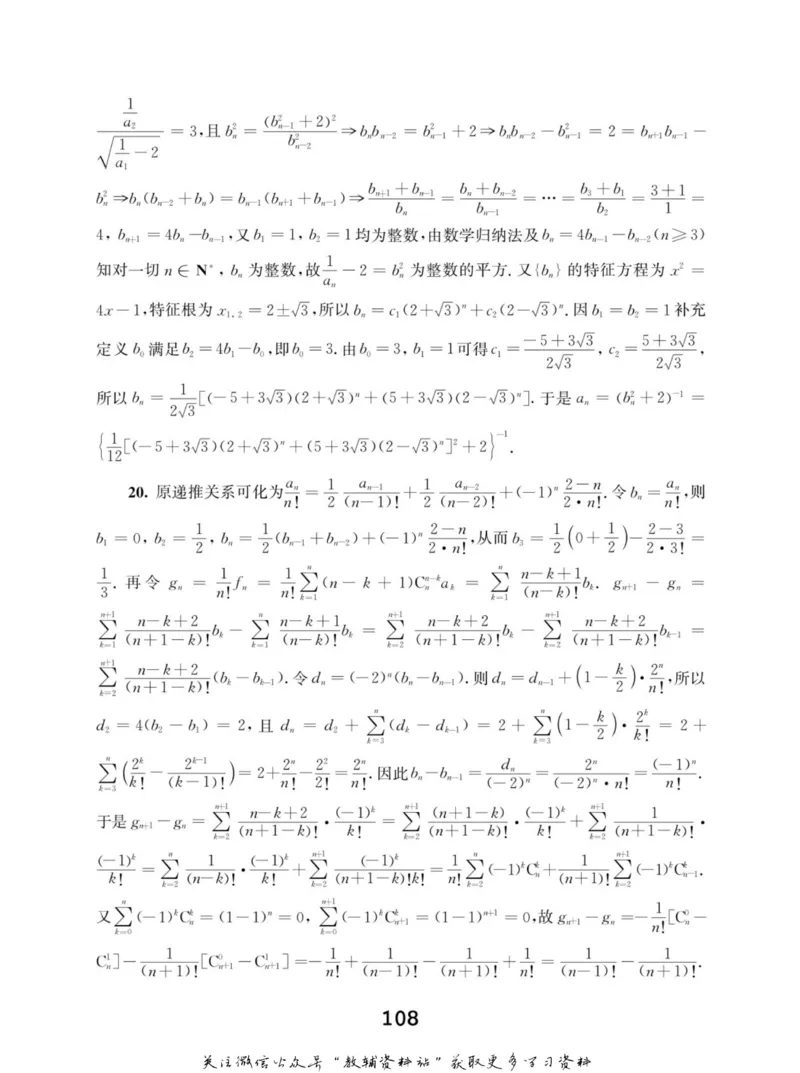 \frac{\frac{1}{a_2}}{\sqrt{\frac{1}{a_1}-2}} = 3,且 b_n^2 = \frac{(b_{n-1}^2+2)^2}{b_{n-2}^2} ⇒ b_n b_{n-2} = b_{n-1}^2+2 ⇒ b_n b_{n-2} - b_{n-1}^2 = 2 = b_{n+1} b_{n-1} -
b_n^2 ⇒ b_n(b_{n-2}+b_n) = b_{n-1}(b_{n+1}+b_{n-1}) ⇒ \frac{b_{n+1}+b_{n-1}}{b_n} = \frac{b_n+b_{n-2}}{b_{n-1}} = ⋯ = \frac{b_3+b_1}{b_2} = \frac{3+1}{1} =
4, b_{n+1} = 4b_n-b_{n-1},又 b_1 = 1, b_2 = 1 均为整数,由数学归纳法及 b_n = 4b_{n-1}-b_{n-2}(n≥3)
知对一切 n∈N^*, b_n 为整数,故 \frac{1}{a_n}-2 = b_n^2 为整数的平方. 又{b_n} 的特征方程为 x^2 =
4x-1,特征根为 x_{1,2} = 2±\sqrt{3},所以 b_n = c_1(2+\sqrt{3})^n+c_2(2-\sqrt{3})^n. 因 b_1 = b_2 = 1 补充
定义 b_0 满足 b_2 = 4b_1-b_0,即 b_0 = 3. 由 b_0 = 3, b_1 = 1 可得 c_1 = \frac{-5+3\sqrt{3}}{2\sqrt{3}}, c_2 = \frac{5+3\sqrt{3}}{2\sqrt{3}},
所以 b_n = \frac{1}{2\sqrt{3}}[(-5+3\sqrt{3})(2+\sqrt{3})^n+(5+3\sqrt{3})(2-\sqrt{3})^n]. 于是 a_n = (b_n^2+2)^{-1} =
{\frac{1}{12}[(-5+3\sqrt{3})(2+\sqrt{3})^n+(5+3\sqrt{3})(2-\sqrt{3})^n]^2+2}^{-1}.
20. 原递推关系可化为 \frac{a_n}{n!} = \frac{1}{2}\frac{a_{n-1}}{(n-1)!}+\frac{1}{2}\frac{a_{n-2}}{(n-2)!}+(-1)^n\frac{2-n}{2·n!}. 令 b_n = \frac{a_n}{n!},则
b_1 = 0, b_2 = \frac{1}{2}, b_n = \frac{1}{2}(b_{n-1}+b_{n-2})+(-1)^n\frac{2-n}{2·n!},从而 b_3 = \frac{1}{2}(0+\frac{1}{2})-\frac{2-3}{2·3!} =
\frac{1}{3}. 再令 g_n = \frac{1}{n!}f_n = \frac{1}{n!}\sum_{k=1}^{n}(n-k+1)C_n^{n-k}a_k = \sum_{k=1}^{n}\frac{n-k+1}{(n-k)!}b_k. g_{n+1}-g_n =
\sum_{k=1}^{n+1}\frac{n-k+2}{(n+1-k)!}b_k-\sum_{k=1}^{n}\frac{n-k+1}{(n-k)!}b_k = \sum_{k=2}^{n+1}\frac{n-k+2}{(n+1-k)!}b_k-\sum_{k=2}^{n+1}\frac{n-k+2}{(n+1-k)!}b_{k-1} =
\sum_{k=2}^{n+1}\frac{n-k+2}{(n+1-k)!}(b_k-b_{k-1}). 令 d_n = (-2)^n(b_n-b_{n-1}). 则 d_n = d_{n-1}+(1-\frac{k}{2})·\frac{2^n}{n!},所以
d_2 = 4(b_2-b_1) = 2, 且 d_n = d_2+\sum_{k=3}^{n}(d_k-d_{k-1}) = 2+\sum_{k=3}^{n}(1-\frac{k}{2})·\frac{2^k}{k!} = 2+
\sum_{k=3}^{n}(\frac{2^k}{k!}-\frac{2^{k-1}}{(k-1)!}) = 2+\frac{2^n}{n!}-\frac{2^2}{2!} = \frac{2^n}{n!}. 因此 b_n-b_{n-1} = \frac{d_n}{(-2)^n} = \frac{2^n}{(-2)^n·n!} = \frac{(-1)^n}{n!}.
于是 g_{n+1}-g_n = \sum_{k=2}^{n+1}\frac{n-k+2}{(n+1-k)!}·\frac{(-1)^k}{k!} = \sum_{k=2}^{n+1}\frac{(n+1-k)}{(n+1-k)!}·\frac{(-1)^k}{k!}+\sum_{k=2}^{n+1}\frac{1}{(n+1-k)!}·
\frac{(-1)^k}{k!} = \sum_{k=2}^{n}\frac{1}{(n-k)!}·\frac{(-1)^k}{k!}+\sum_{k=2}^{n+1}\frac{(-1)^k}{(n+1-k)!k!} = \frac{1}{n!}\sum_{k=2}^{n}(-1)^kC_n^k+\frac{1}{(n+1)!}\sum_{k=2}^{n+1}(-1)^kC_{n-1}^k.
又\sum_{k=0}^{n}(-1)^kC_n^k = (1-1)^n = 0, \sum_{k=0}^{n+1}(-1)^kC_{n+1}^k = (1-1)^{n+1} = 0,故 g_{n+1}-g_n = -\frac{1}{n!}[C_n^0-
C_n^1]-\frac{1}{(n+1)!}[C_{n+1}^0-C_{n+1}^1] = -\frac{1}{n!}+\frac{1}{(n-1)!}-\frac{1}{(n+1)!}+\frac{1}{n!} = \frac{1}{(n-1)!}-\frac{1}{(n+1)!}.
108
关注微信公众号“教辅资料站”获取更多学习资料